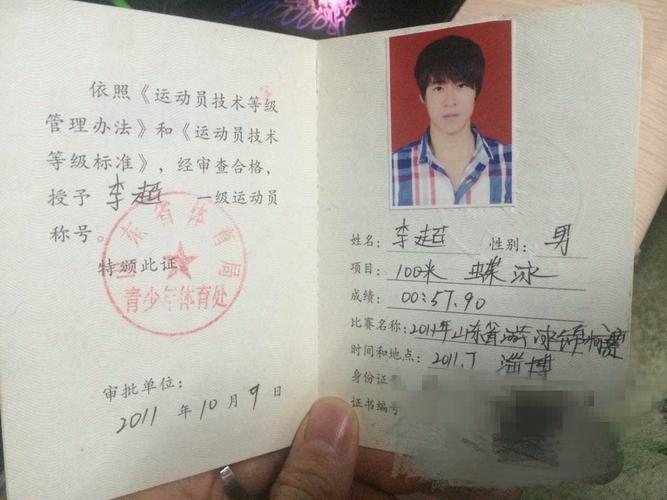 依照《运动员技术等级
管理办法》和《运动员技术
等级标准》，经审查合格，
授予 李超 一级运动员
称号。
特颁此证
山东省体育局
青少年体育处
审批单位：
2011 年 10 月 9 日
姓名： 李超 性别： 男
项目： 100米 蝶泳
成绩： 00:57.90
比赛名称： 2011年山东省游泳锦标赛
时间和地点： 2011.7 淄博
身份证
证书编号